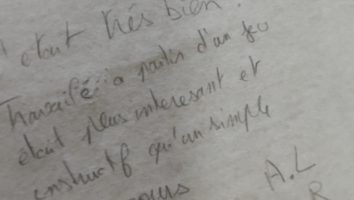 était très bien.
Travaillé à partir d'un jeu
était plus interessant et
instructif qu'un simple
cours
A.L
R